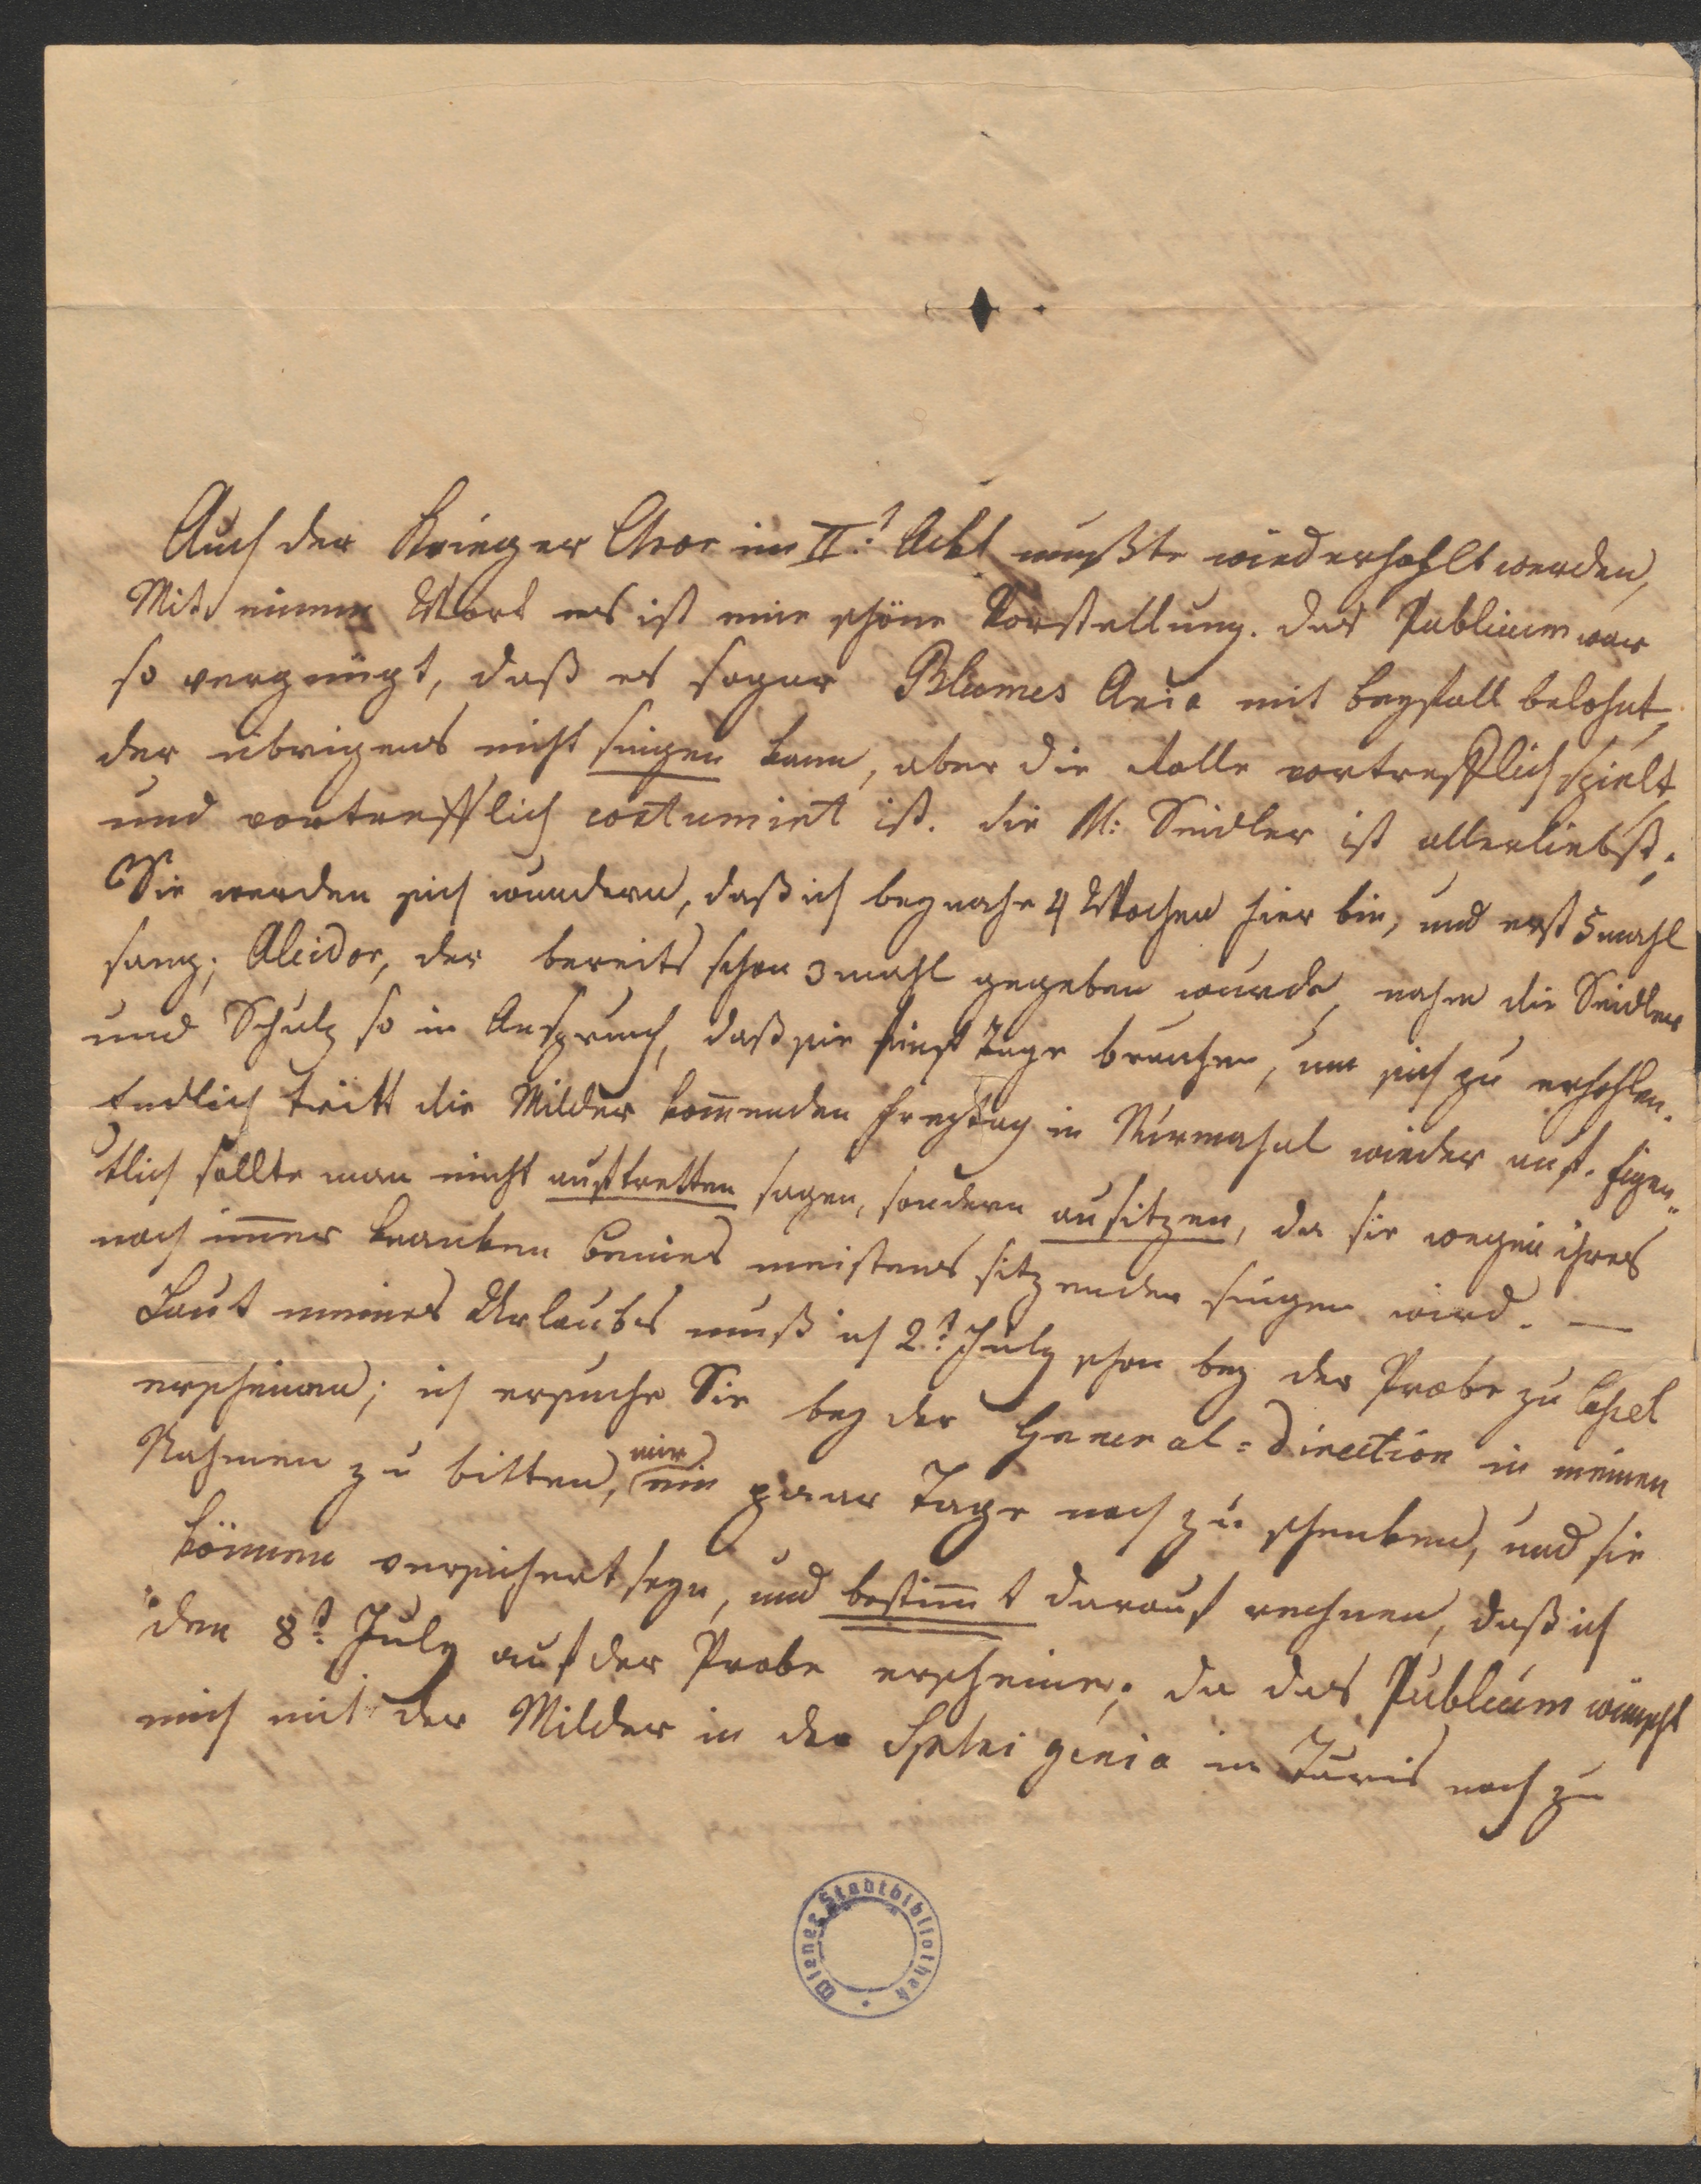 Auch der Krieger Chor im II.t Ackt mußte wiederhohlt werden,
Mit einem Wort es ist eine schöne Vorstellung. Das Publicum war
so vergnügt, daß es sogar Blumes Aria mit Beyfall belohnt,
der übrigens nicht singen kann, aber die Rolle vortrefflich spielt,
und vortrefflich costumiet ist. Die M: Seidler ist allerliebst.
Sie werden sich wundern, daß ich beynahe 4 Wochen hier bin, und erst 5 mahl
sang; Alcidor, der bereits schon 3 mahl gegeben wurde, nahm die Seidler
und Schulz so in Anspruch, daß sie fünf Tage brauchen, um sich zu erhohlen.
Endlich tritt die Milder kom̄enden Freytag in Nurmahal wieder auf. Eigen„
tlich sollte man nicht auftretten sagen, sondern aufsitzen, da sie wegen ihres
noch im̄er kranken Beines meistens sitzender singen wird. —
Laut meines Urlaubes muß ich 2.t July schon bey der Probe zu Cassel
erscheinen; ich ersuche Sie bey der General=Direction in meinen
Nahmen zu bitten, mir
ein paar Tage noch zu schenken, und sie
können versichert seyn, und bestim̄t darauf rechnen, daß ich
den 8.t July auf der Probe erscheine. da das Publicum wünscht
mich mit der Milder in der Iphigenia in Tauris noch zu
Wiener Stadtbibliothek